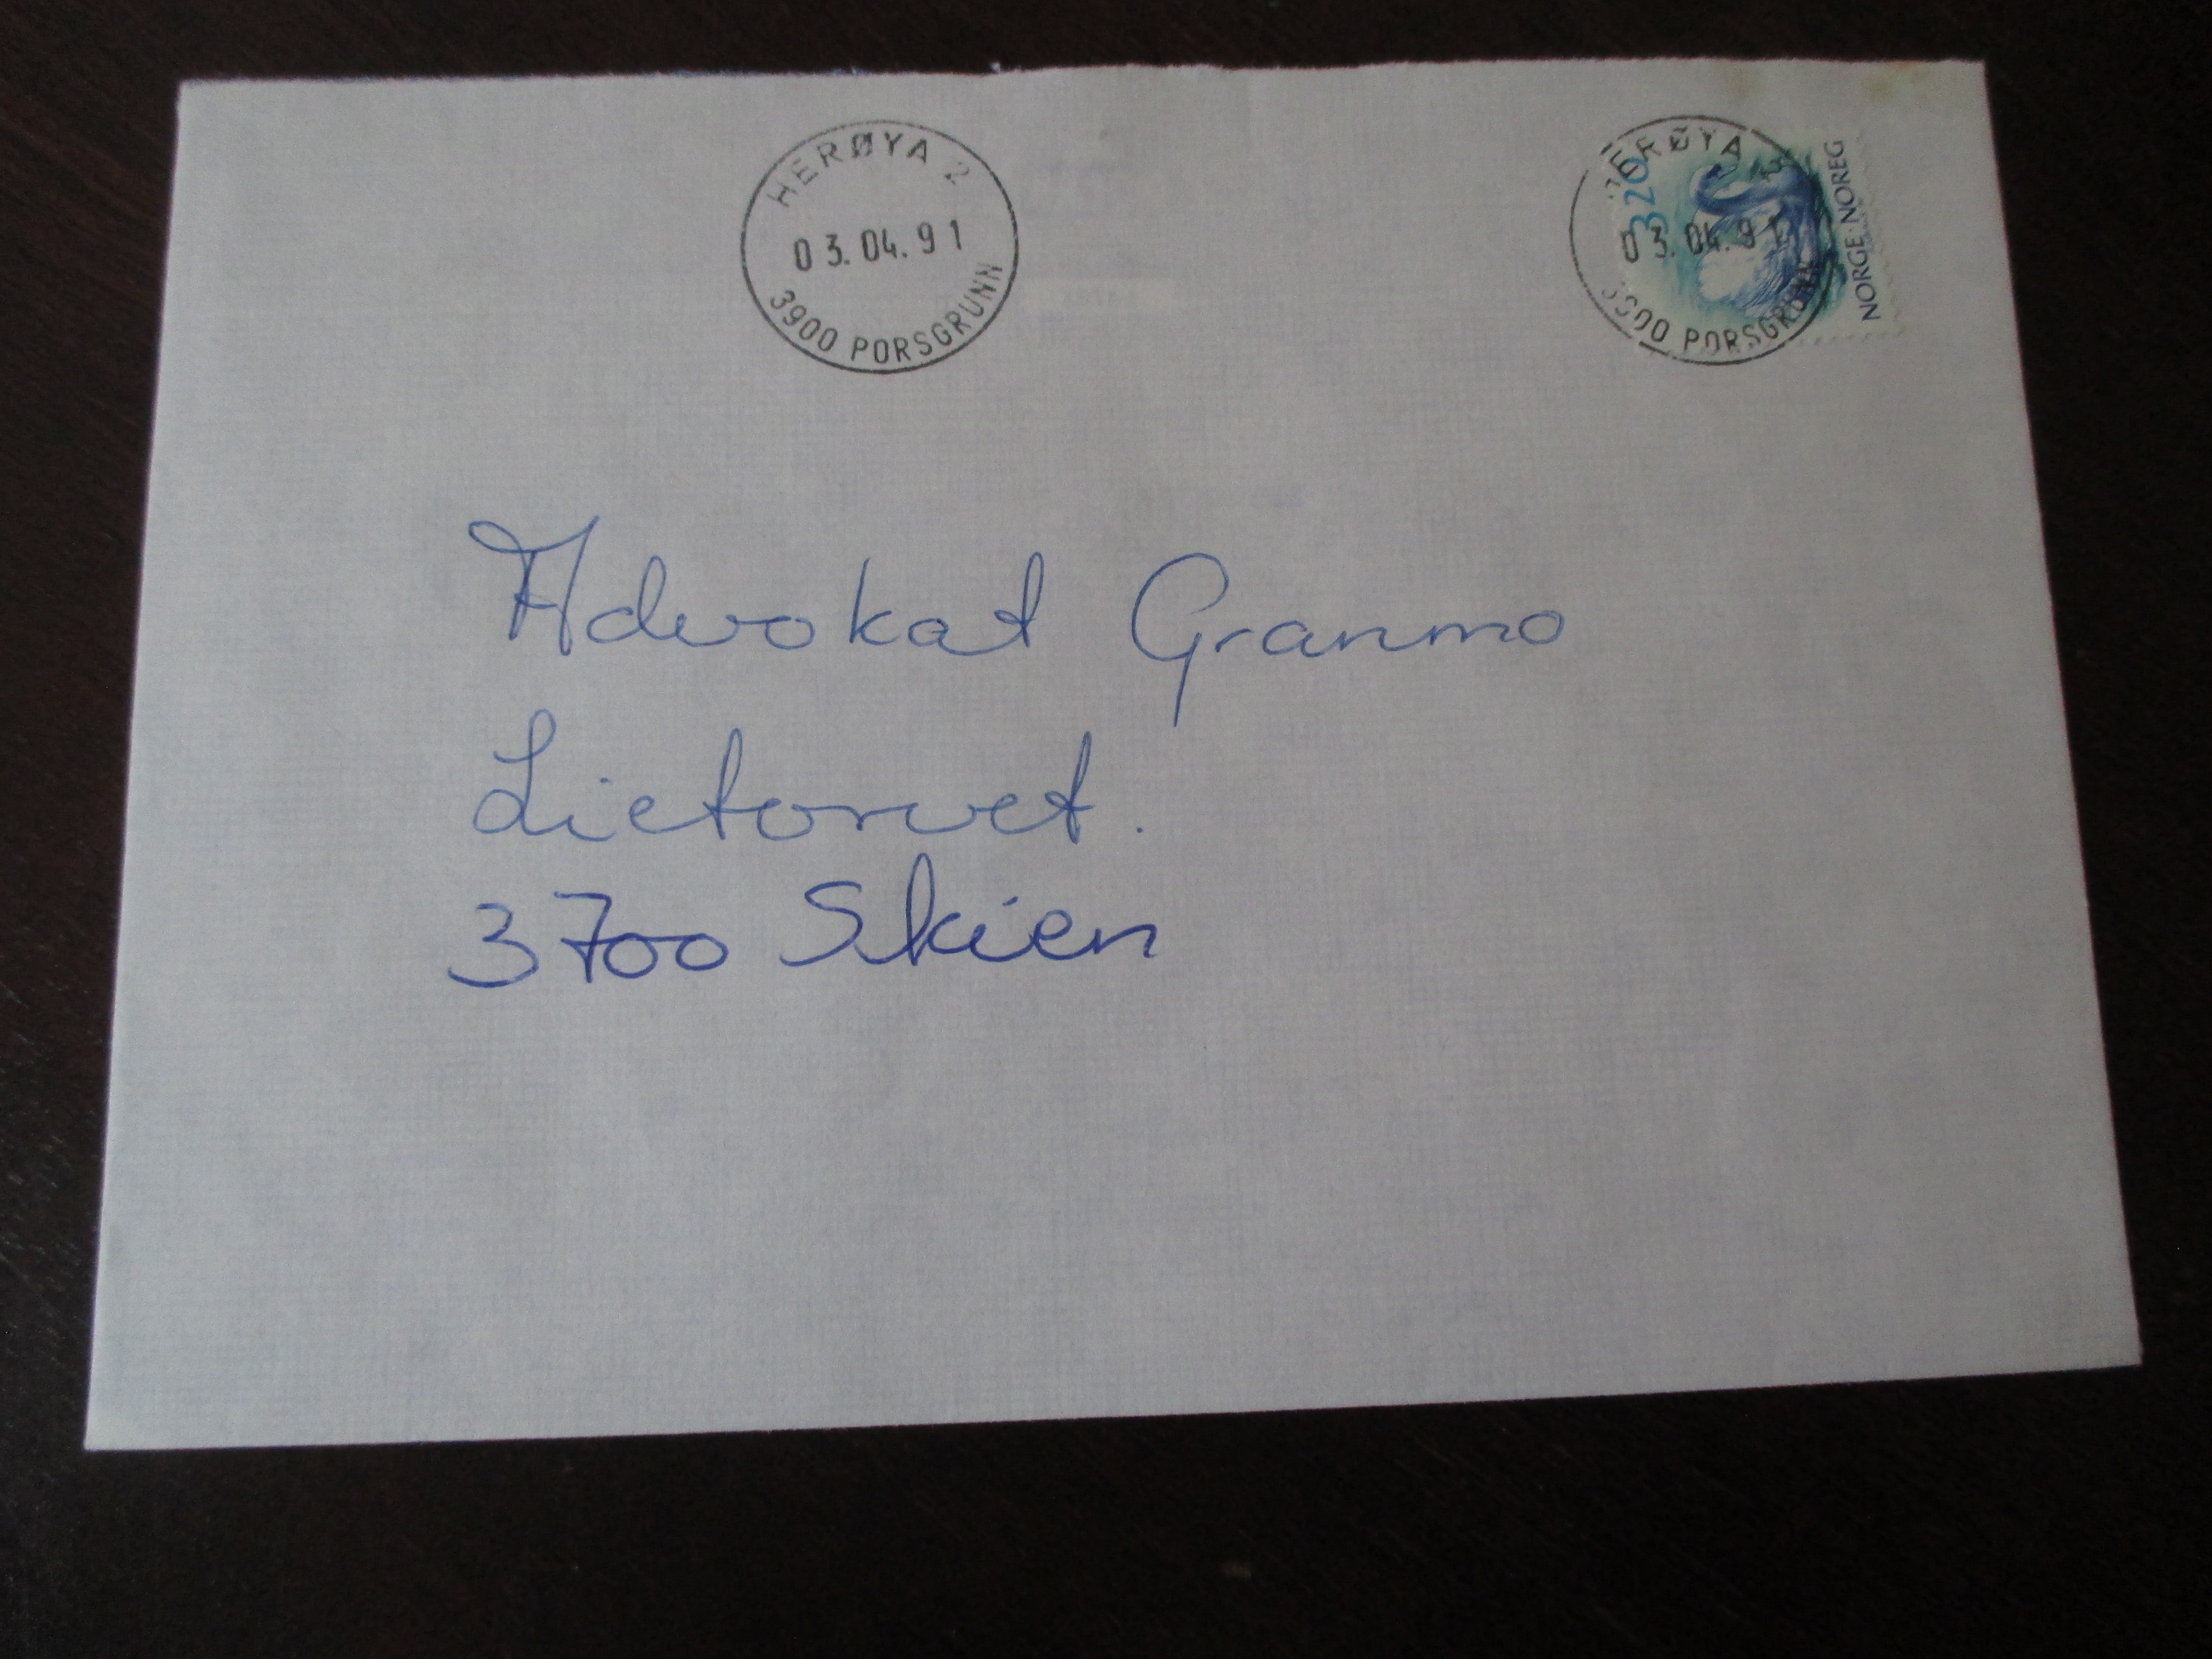 HERØYA 2
03.04.91
3900 PORSGRUNN
HERØYA 2
03.04.91
3900 PORSGRUNN
320
NORGE·NOREG
Advokat Granmo
Lietorvet.
3700 Skien